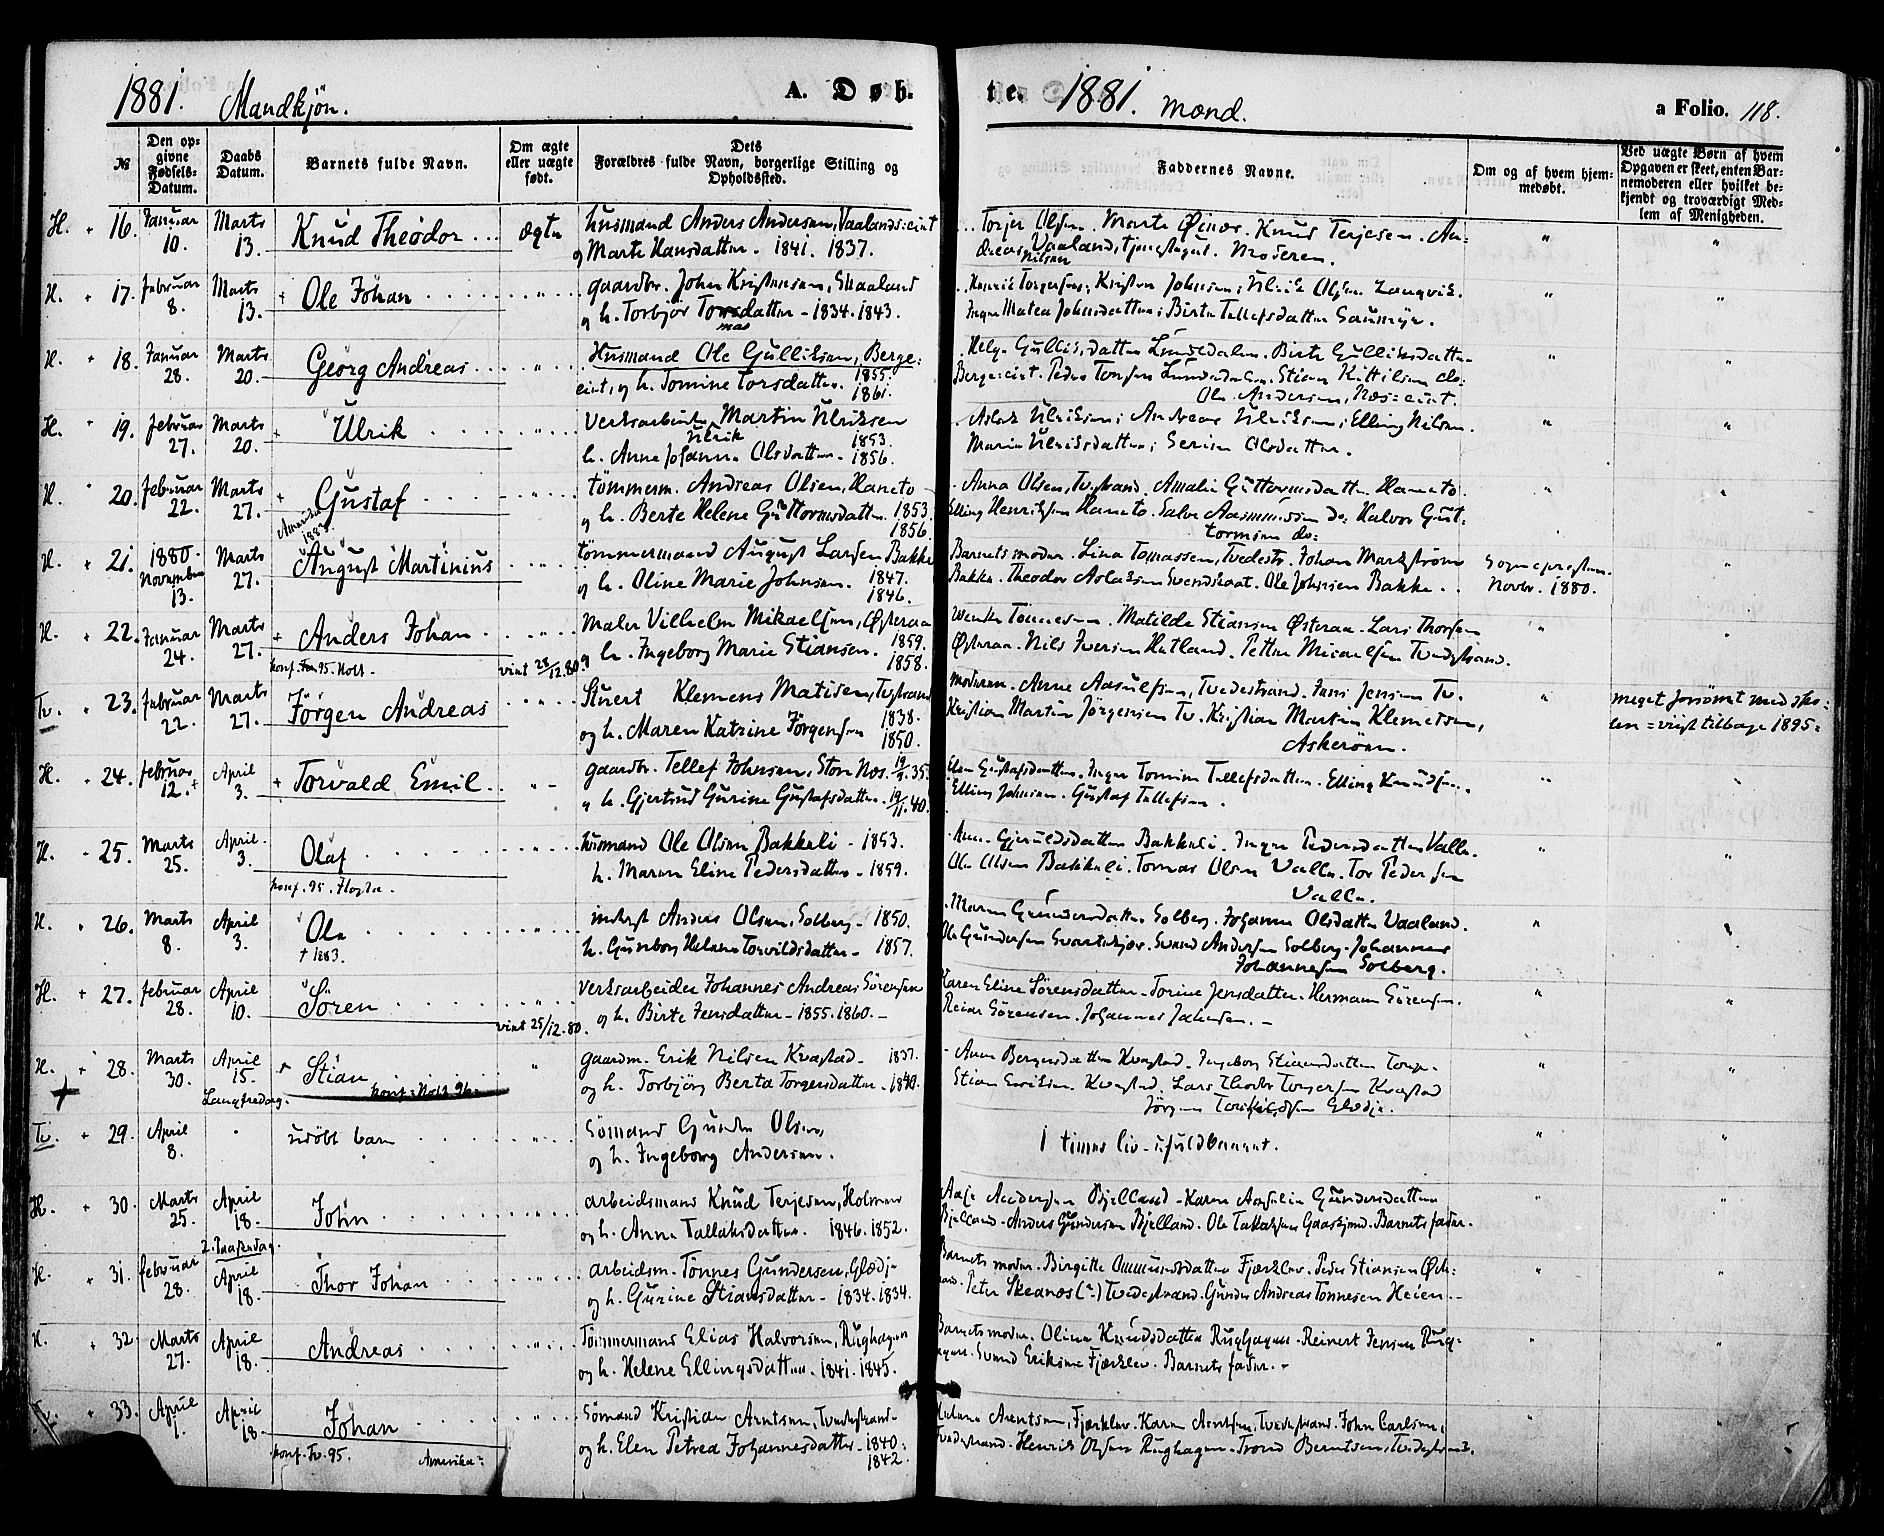 1881. Mandkjøn. A. Døb-
te. 1881. Mænd. a Folio. 118.
№
Den op-
givne
Fødsels-
Datum.
Daabs
Datum.
Barnets fulde Navn.
Om ægte
eller uægte
født.
Dets
Forældres fulde Navn, borgerlige Stilling og
Opholdssted.
Faddernes Navne.
Om og af hvem hjem-
medøbt.
Ved uægte Børn af hvem
Opgaven er skeet, enten Bar-
nemoderen eller hvilket be-
kjendt og troværdigt Med-
lem af Menigheden.
H. 16. Januar 10. Marts 13. Knud Theodor ægte Husmand Anders Andersen, Vaalandseiet
og Marte Hansdatter. 1841. 1837.
Torjer Olsen. Marte Øinæs. Knud Terjesen. An-
dreas Nilsen Vaaland, tjenestegut. Moderen.
H. 17. Februar 8. Marts 13. Ole Johan gaardbr. John Kristensen, Skaaland
og h. Torbjør Tomasdatter - 1834. 1843.
Henrik Torgersen; Kristen Johnsen; Ulrik Olsen Langvik.
Inger Matea Johnsdatter; Birte Tellefsdatter
H. 18. Januar 28. Marts 20. Georg Andreas Husmand Ole Gulliksen, Berge-
eiet, og h. Tomine Torsdatter. 1855. 1861.
Helge Gulliksdatter Lunsedalen. Birte Gulliksdatter
Bergeeiet. Peder Torsen Lunsedalen. Stian Kittilsen do:
Ole Andersen, Næs-eiet.
H. 19. Februar 27. Marts 20. Ulrik Verksarbeider Martin Ulriksen 1853.
h. Anne Johanne Olsdatter - 1856.
Aslak Ulriksen; Andreas Ulriksen; Elling Nilsen.
Maria Ulriksdatter; Serine Olsdatter.
H. 20. Februar 22. Marts 27. Gustaf tømmerm. Andreas Olsen, Haneto
Amerika 1883.
og h. Berte Helene Guttormsdatter. 1853. 1856.
Anna Olsen, Tvedestrand. Amalie Guttormsdatter Haneto.
Elling Henriksen Haneto. Salve Aasmundsen do: Halvor Gut-
tormsen do:
H. 21. 1880. November 13. Marts 27. August Martinius tømmermand August Larsen Bakke
og h. Oline Marie Johnsen. 1847. 1846.
Barnets moder. Lina Tomassen, Tvedestr. Johan Markstrøm
Bakke. Theodor Aslaksen Ole Johnsen Bakke.
Sognepresten.
Novbr. 1880.
H. 22. Januar 24. Marts 27. Anders Johan Maler Vilhelm Mikaelsen, Østeraa
konf. 95. Holt. viet 28/12.80.
og h. Ingeborg Marie Stiansen. 1859. 1858.
Wenke Tønnesen. Matilde Stiansen Østeraa. Lars Thorsen
Østeraa. Nils Iversen Hetland. Petter Micaelsen Tvedestrand.
Tv. 23. Februar 22. Marts 27. Jørgen Andreas Stuert Klemens Matisen, Tvedestrand 1838.
og h. Maren Katrine Jørgensen 1850.
Moderen. Anne Aasulfsen, Tvedestrand. Jens Jensen Tv.
Kristian Martin Jørgensen Tv. Kristian Martin Klemetsen,
Askerøen.
meget forsømt med sko-
len = viist tilbage 1895=
H. 24. Februar 12. April 3. Torvald Emil gaardbr. Tellef Johnsen, Store Næs. 19/9. 35.
h. Gjertrud Gurine Gustafsdatter. 19/11. 40.
Elen Gustafsdatter. Inger Tomine Tellefsdatter. Elling Knudsen.
Elling Johnsen. Gustaf Tellefsen.
H. 25. Marts 25. April 3. Olaf Husmand Ole Olsen Bakkeli - 1853.
konf. 95. Flosta.
h. Maren Eline Pedersdatter - 1859.
Anne Gjeruldsdatter Bakkeli. Inger Pedersdatter Valle.
Ole Olsen Bakkeli. Tomas Olsen Valle. Tor Pedersen
Valle.
H. 26. Marts 8. April 3. Ole inderst Anders Olsen, Solberg - 1850.
† 1883.
h. Gunborg Helene Torvildsdatter - 1857.
Maren Gundersdatter Solberg. Johanne Olsdatter Vaaland.
Ole Gundersen Svartekjær. Svend Andersen Solberg. Johannes
Johannesen Solberg.
H. 27. Februar 28. April 10. Søren Verksarbeider Johannes Andreas Sørensen
viet 25/12.80.
og h. Birte Jensdatter - 1855. 1860. -
Karen Eline Sørensdatter. Torine Jensdatter. Hermann Sørensen.
Reier Sørensen. Johannes Jakobsen. -
H. 28. Marts 30. April 15. Langfredag. Stian gaardm. Erik Nilsen Kvastad - 1837.
konf. Holt 96.
og h. Torbjørg Berta Torgersdatter - 1840.
Anne Bergersdatter Kvastad. Ingeborg Stiansdatter Torp.
Stian Eriksen Kvastad. Lars Theodor Torgersen Kvastad
Jørgen Torkildsen Glødje.
Tv. 29. April 8. udøbt barn Sømand Gunder Olsen,
og h. Ingeborg Andersen.
1 times liv - ufuldbaaret.
H. 30. Marts 25. April 18. 2. Paaskedag. John arbeidsmand Knud Terjesen, Holmen
og h. Anne Tallaksdatter. 1846. 1852.
Aase Andersen Bjelland - Karen Amalie Gundersdatter
Bjelland. Anders Gundersen Bjelland. Ole Tallaksen Barnets fader.
H. 31. Februar 28. April 18. Thor Johan arbeidsm. Tønnes Gundersen, Glødje
og h. Gurine Stiansdatter - 1834. 1834.
Barnets moder. Birgitte Ommundsdatter Fjærkleiv. Peder Stiansen
Peter Skeanæs Tvedestrand. Gunder Andreas Tønnesen Heien.
H. 32. Marts 27. April 18. Andreas Tømmermand Elias Halvorsen, Rughagen
og h. Helene Ellingsdatter - 1841. 1845.
Barnets moder. Oline Knudsdatter Rughagen - Reinert Jensen Rug-
hagen. Svend Eriksen Fjærkleiv. Barnets fader. -
Tv. 33. April 1. April 18. Johan Sømand Kristian Arntsen, Tvedestrand -
konf. Tv. 95. Amerika =
og h. Elen Petrea Johannesdatter - 1840. 1842.
Helene Arentsen, Fjærkleiv. Karen Arentsen, Tvedestrand. John Carlsen,
Tvedestrand. Henrik Olsen Rughagen. Trond Berntsen, Tvedestrand.